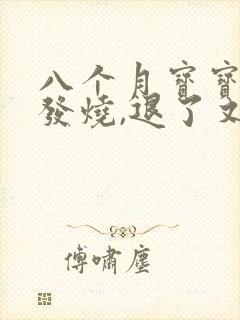 八个月寶寶
發燒,退了又
傅嘯塵